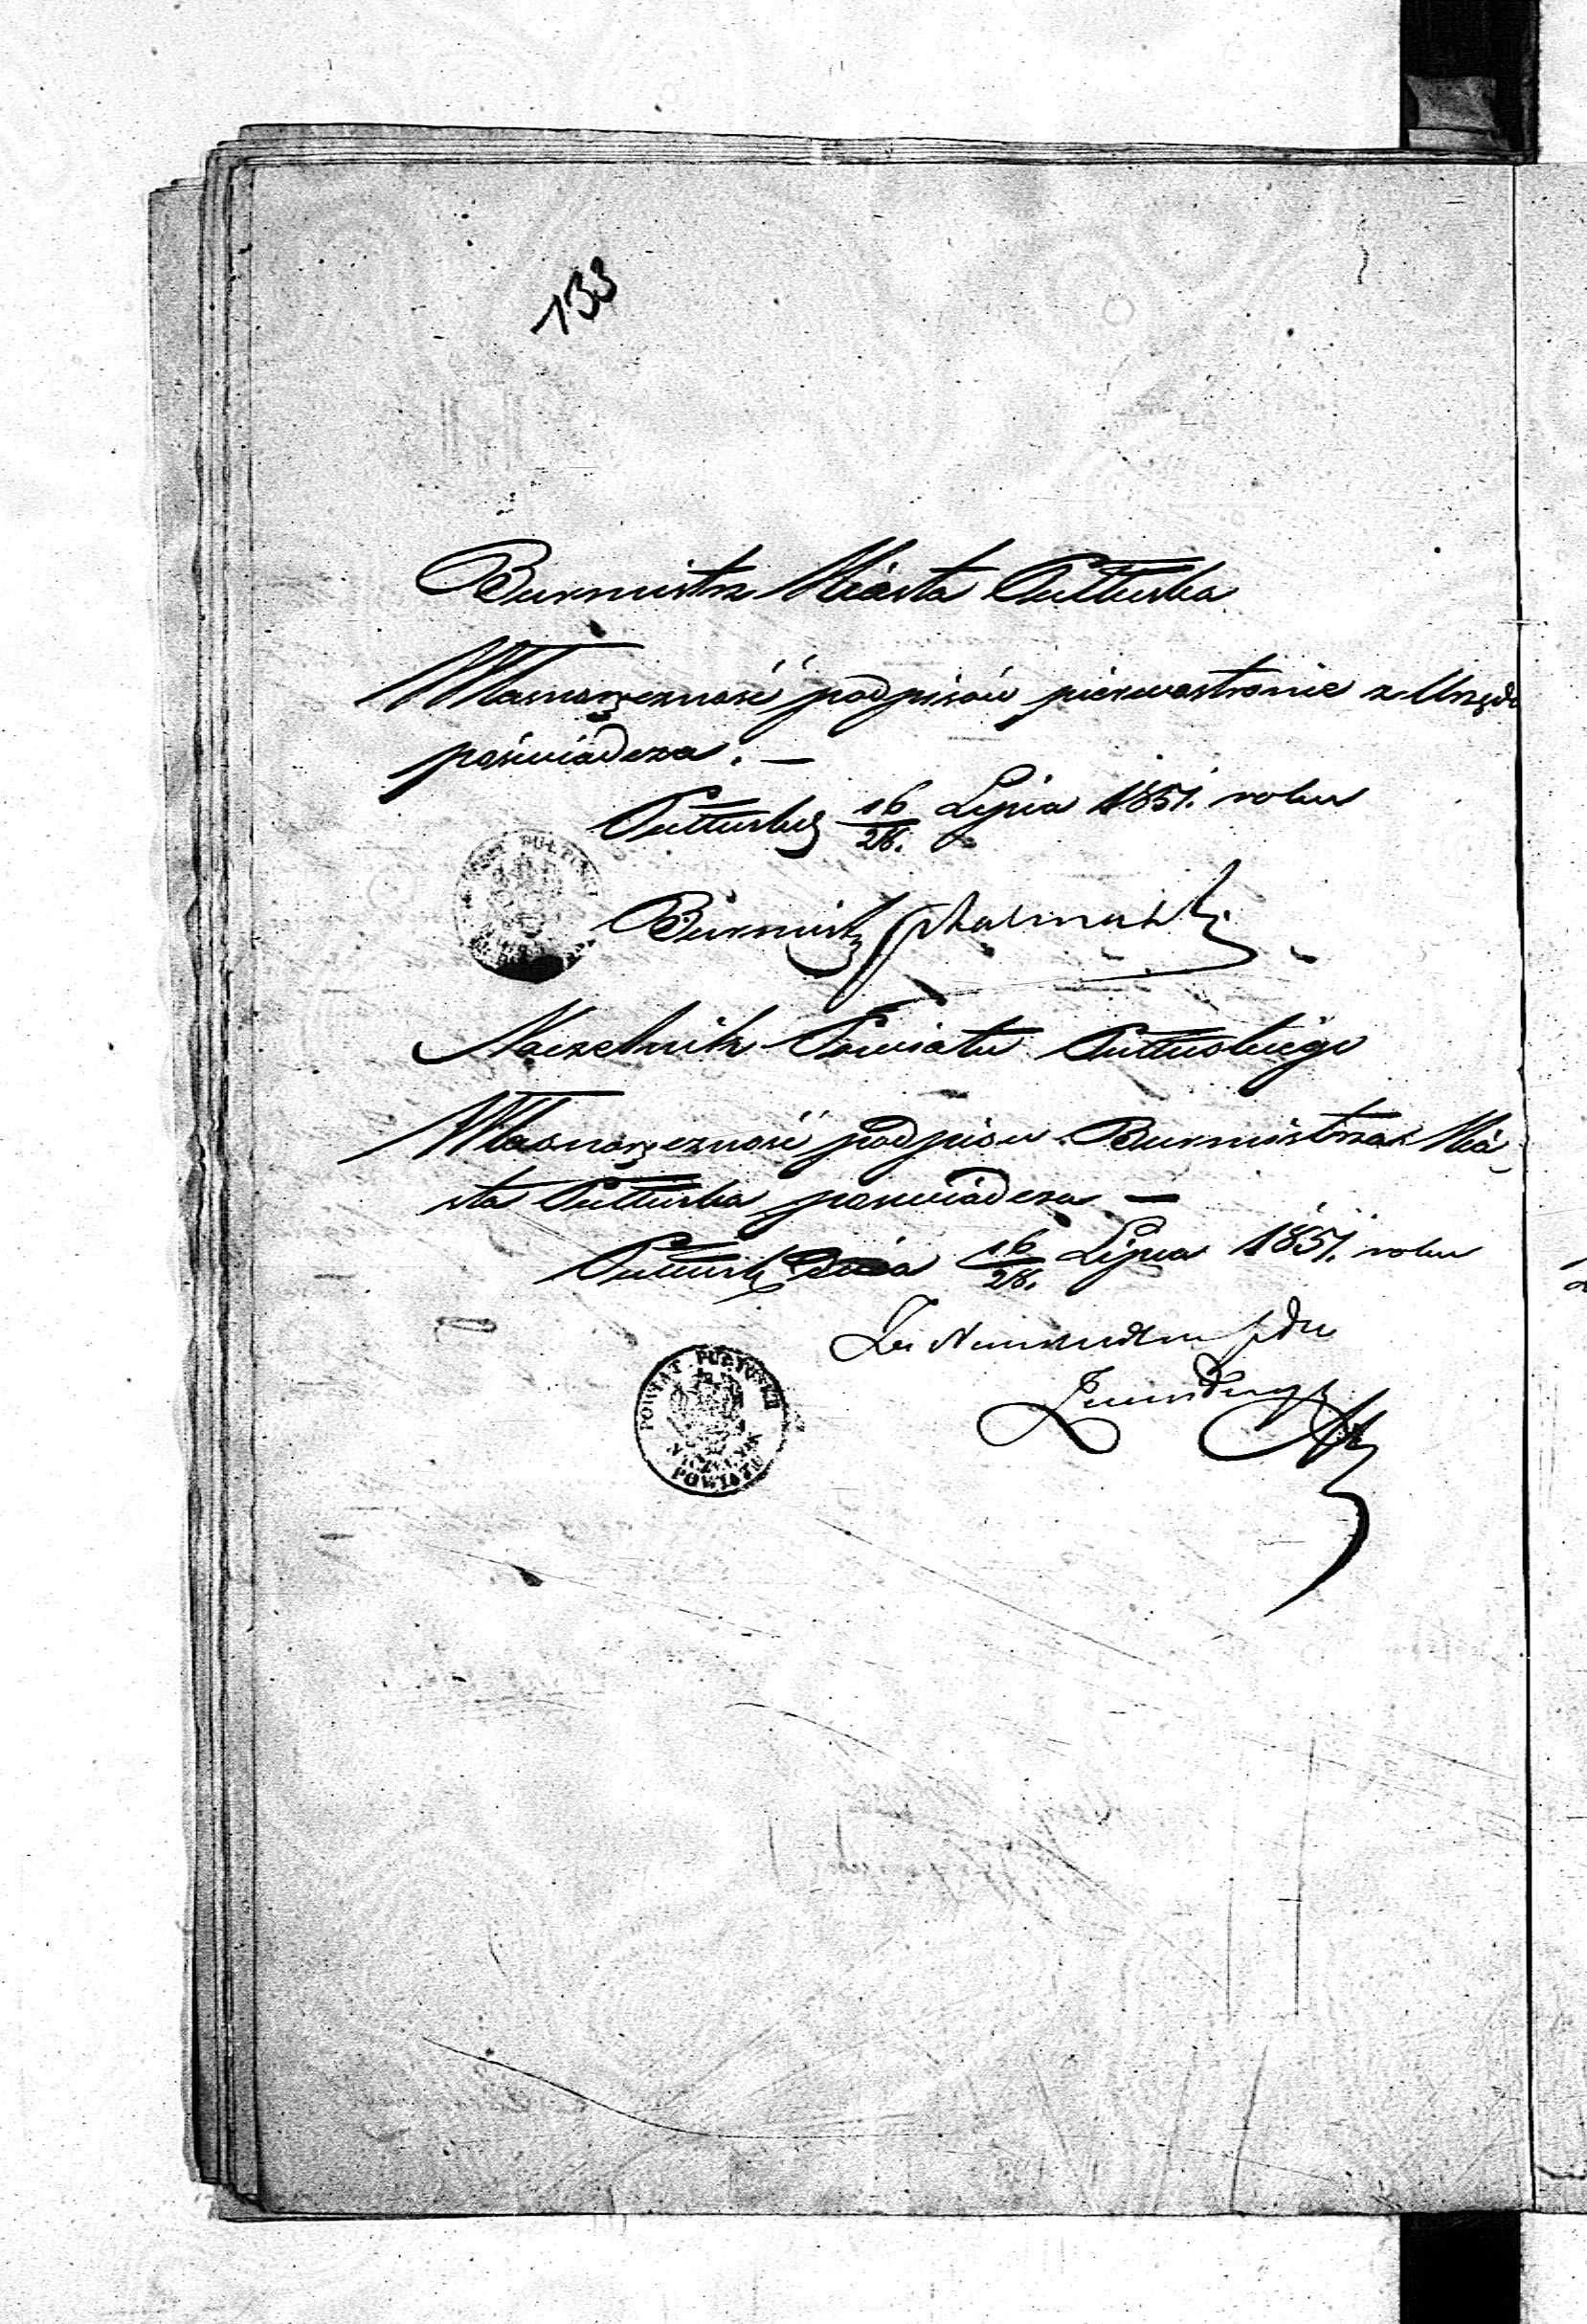 133
Burmistrz Miasta Pułtuska
Własnoręczność podpisów pierwostronie z Urzędu
poświadcza. —
Pułtusk 16/28. Lipca 1851. roku
Burmistrz
Naczelnik Powiatu Pułtuskiego
Własnoręczność podpisu Burmistrza Mia-
sta Pułtuska poświadcza —
Pułtusk Dnia 16/28. Lipca 1851. roku
POWIAT PUŁTUSKI
NACZELNIK
POWIATU